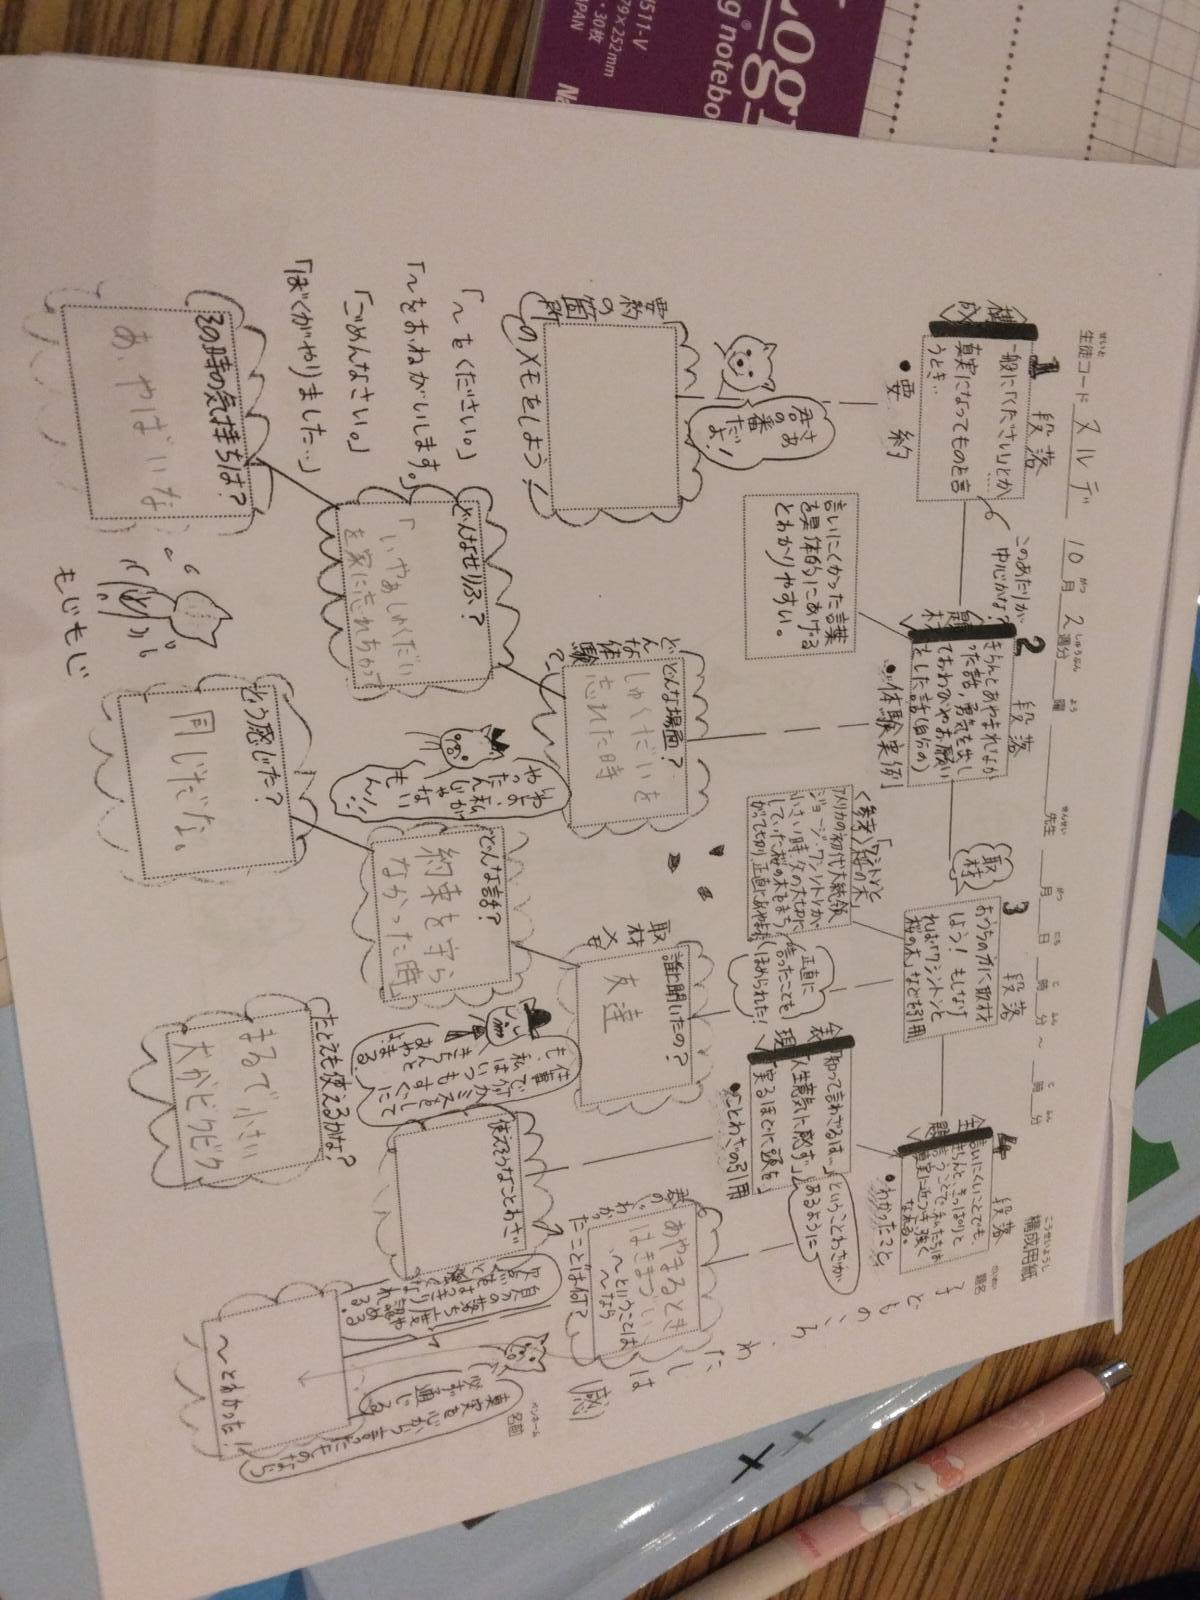 せいと
生徒コード ヌルデ 10月 2週分 曜 先生 月 日 時 分 ~ 時 分
こうせいようし
構成用紙
題名
子どものころ、わたしは
(感)
ペンネーム
名前
構成
1 段落
一般に「ください」とか
真実になってものを言
うとき…
・要約
このあたりが
中心かな?
君の
番だよ!
要約の箇所
のメモをしよう!
「~をください。」
「~をおねがいします。」
「ごめんなさい。」
「ぼくがやりました…」
題材
2 段落
きちんとあやまれなか
った話、勇気を出し
ておわびやお願い
をした話(自分の)
・体験実例
言いにくかった言葉
を具体的にあげる
とわかりやすい。
どんな体験?
どんな場面?
しゅくだいを
忘れた時
どんなせりふ?
「いやぁしゅくだい
を家に忘れちゃって
その時の気持ちは?
あ、やばいな
もじもじ
取材
3 段落
おうちの方に取材
しよう!もしなけ
れば「ワシントンと
桜の木」なども引用
<参考>「ワシントンと
桜の木」
アメリカの初代大統領
ジョージ・ワシントンが
小さい時、父の大切に
していた桜の木をまち
がって切り、正直にあやまった
正直に
言ったことを
ほめられた!
取材メモ
誰に聞いたの?
友達
どんな話?
約束を守ら
なかった時
どう感じた?
同じだな。
たとえも使えるかな?
まるで小さい
犬がビクビク
4 段落
主題
言いにくいことでも、
きちんと、きっぱりと
言うことで、私たちは
真実に近づき、強く
なれる。
・わかったこと
表現
「知って言わざるは…」
「人生意気に感ず」
「実るほどに頭を」
ということわざが
あるように
・ことわざの引用
使えそうなことわざ
君のわかったことは何?
あやまるとき
はきまずい
~ということは
~なら
~とわかった!
真実を心から言ったものなら
必ず通じる